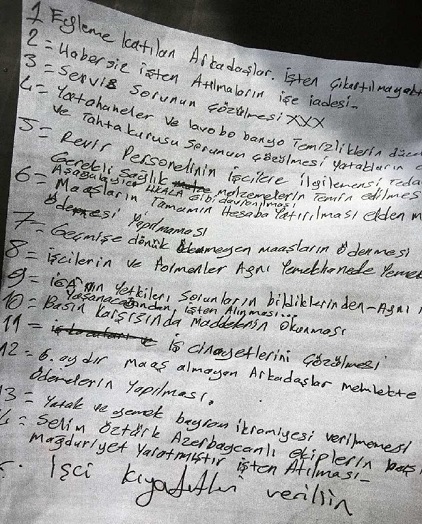 1 Eyleme katılan Arkadaşlar. İşten Çıkartılmayaca
2 = Habersiz işten Atılmaların işe iadesi-
3 = Servis Sorunun Çözülmesi XXX
4 = Yatahaneler ve lavobo banyo Temizliklerin düzen
ve Tahtakurusu Sorunun çözülmesi yatakların
5 = Revir Personelinin İşcilere ilgilenensi Teda
Gerekli Sağlık malzemelerin Temin edilmesi
Aşağılayıcı HKALA Gibi davranılması
6 = Maaşların Tamamın Hesaba Yatırılması elden m
Ödemesi Yapılmaması
7 = Geçmişe dönük ödenmeyen maaşların Ödenmesi
8 = işcilerin ve Formenler Aynı Yemekhanede Yemek
9 = İGA nın Yetkileri Sorunların bildiklerinden - Aynı
Yaşanacağından işten Alınması...
10 = Basın karşısında Maddelerin Okunması
11 = iş cinayetlerini Çözülmesi
12 = 6. aydır maaş almayan Arkadaşlar memlekte
Ödemelerin Yapılması.
13 = Yatak ve yemek bayram ikramiyesi verilmemesi
= Selim Öztürk Azerbaycanlı ekiplerin baş
mağduriyet Yaratmıştır işten Atılması-
İşci kıyafetleri verilsin